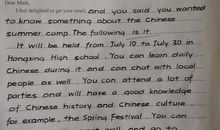 Dear Mark,
I feel delighted to get your email, and you said you wanted
to know something about the Chinese
summer camp. The following is it.
It will be held from July 10 to July 30 in
Hongxing High school. You can learn daily
Chinese during it and can chat with local
people as well. You can attend a lot of
parties and will have a good knowledge
of Chinese history and Chinese culture,
for example, the Spring Festival. You can
well, and go to